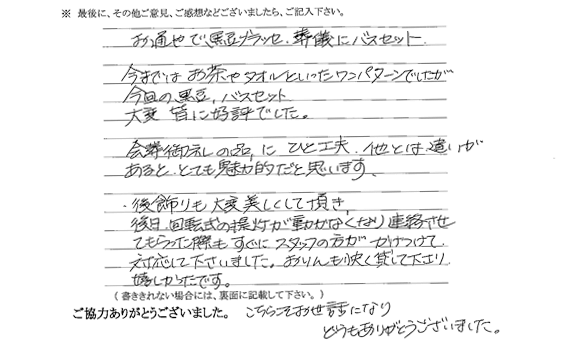 ※ 最後に、その他ご意見、ご感想などございましたら、ご記入下さい。
お通やで黒豆ブラッセ、葬儀にバスセット
今までは お茶や タオルといったワンパターンでしたが
今回の黒豆, バスセット
大変 皆に好評でした。
会葬御礼の品, に ひと工夫、他とは違いが
あると、とても魅力的だと思います、
・後飾りも 大変美しくして頂き,
後日, 回転式の提灯が動かなくなり連絡させ
てもらった際も すぐに スタッフの方が かけつけて
対応して下さいました。おりんも快く貸して下さり
嬉しかったです。
（書ききれない場合には、裏面に記載して下さい。）
ご協力ありがとうございました。 こちらこそお世話になり
どうもありがとうございました。